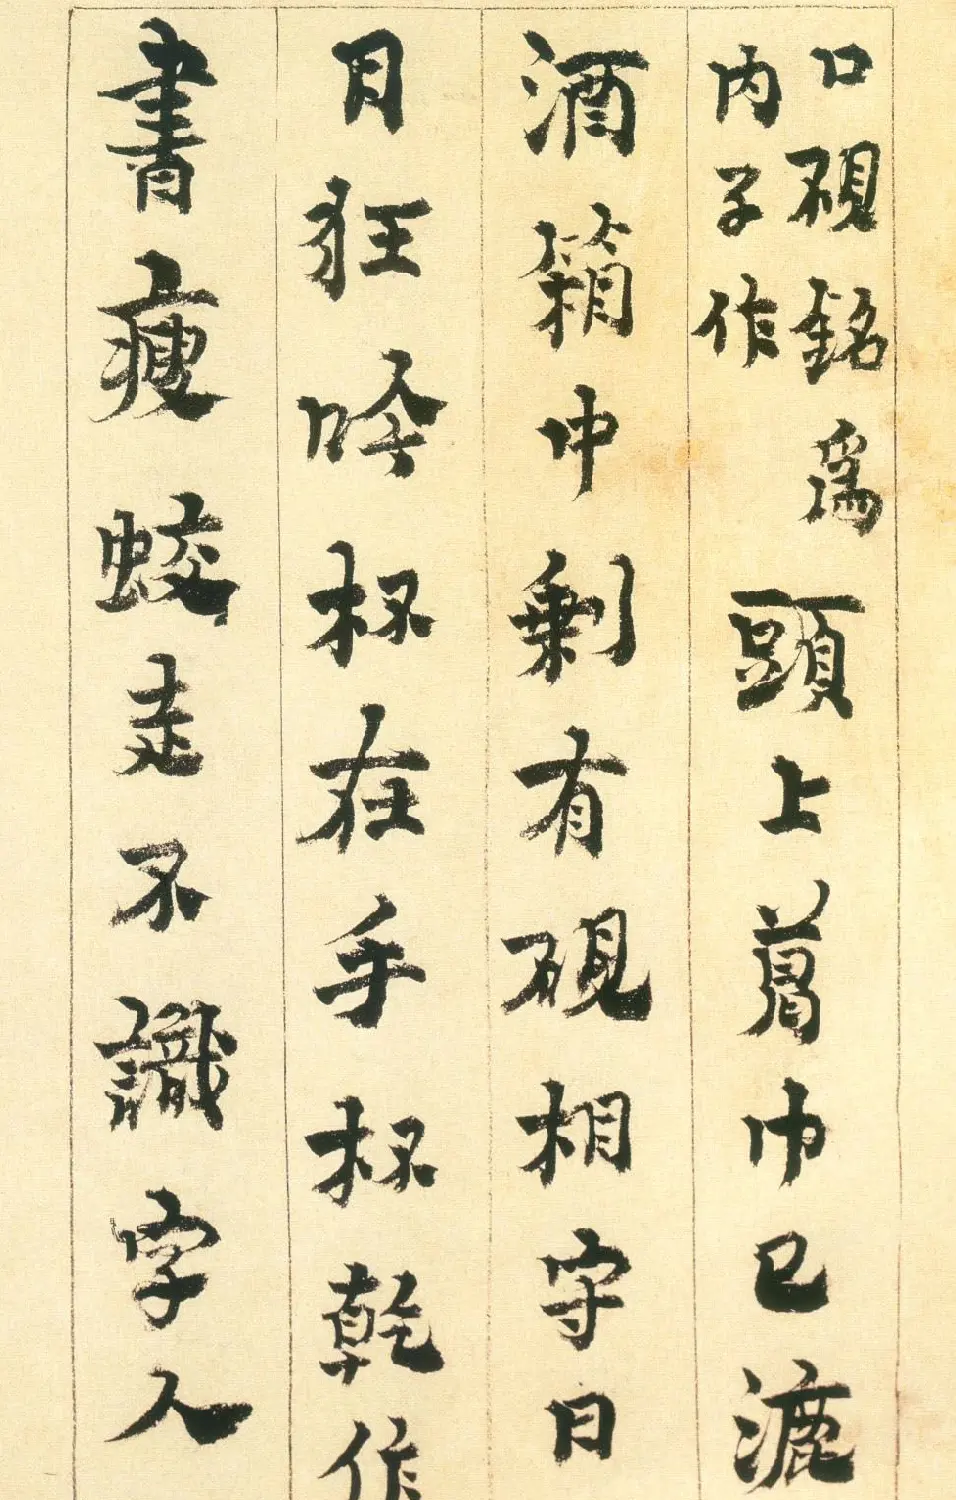 口硯銘為
内子作
頭上葛巾已漉
酒箱中剩有硯相守日
月狂吟杯在手杯乾作
書瘦蛟走不識字人